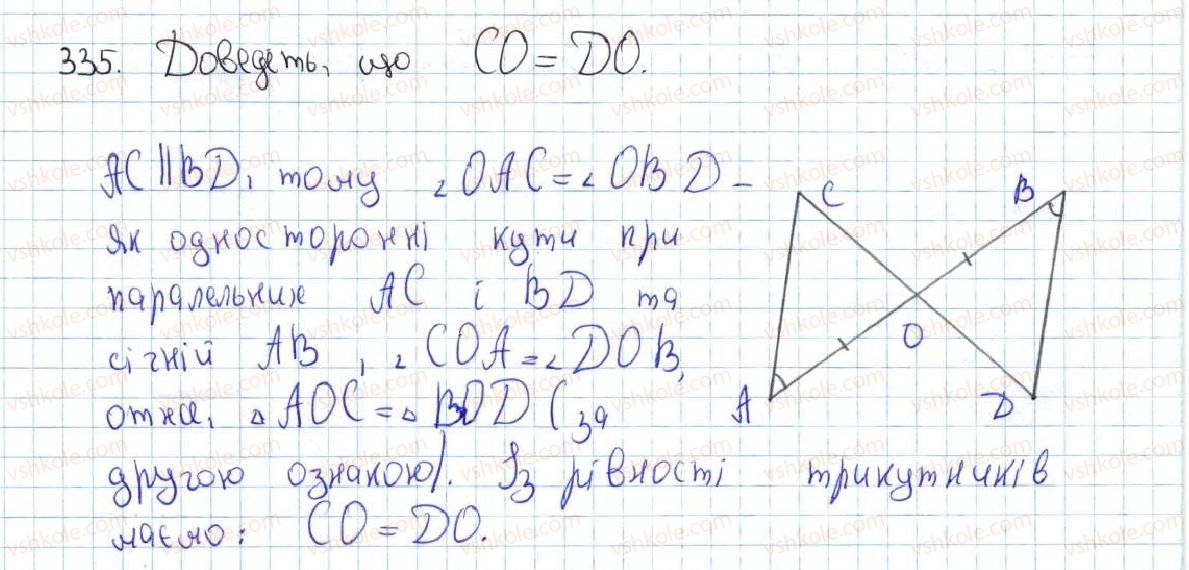 335. Доведеть, що CO = DO.
AC || BD, тому ∠OAC = ∠OBD –
як односторонні кути при
паралельних AC і BD та
січній AB, ∠COA = ∠DOB,
отже, ΔAOC = ΔBOD (за
другою ознакою). Із рівності трикутників
маємо: CO = DO.
C
B
O
A
D
vshkole.com